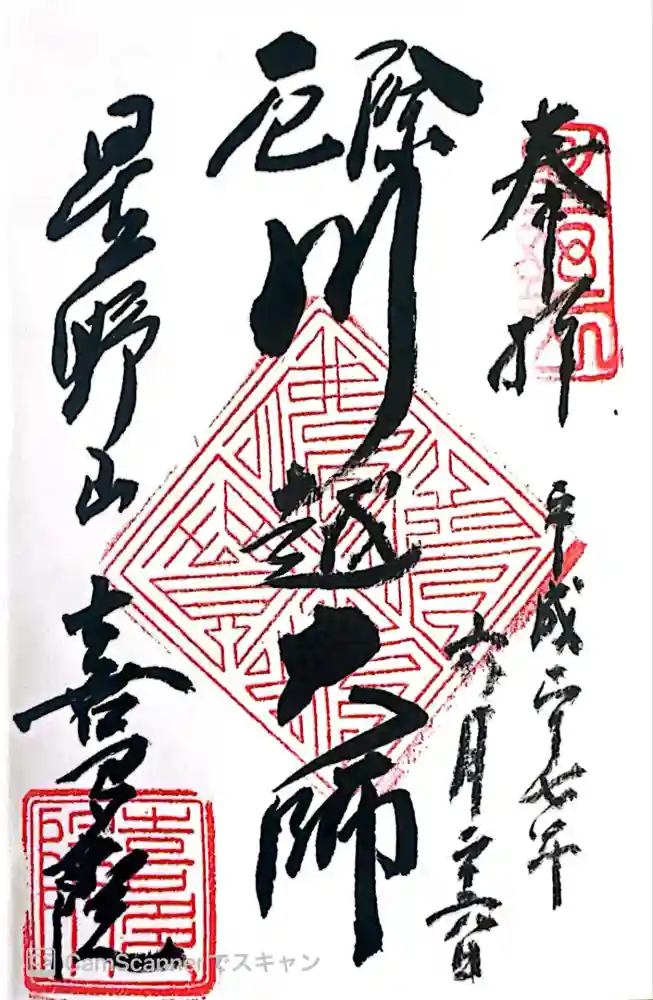 奉拝
平成二十七年
六月二十六日
厄除
川越大師
星野山
喜多院
CamScannerでスキャン